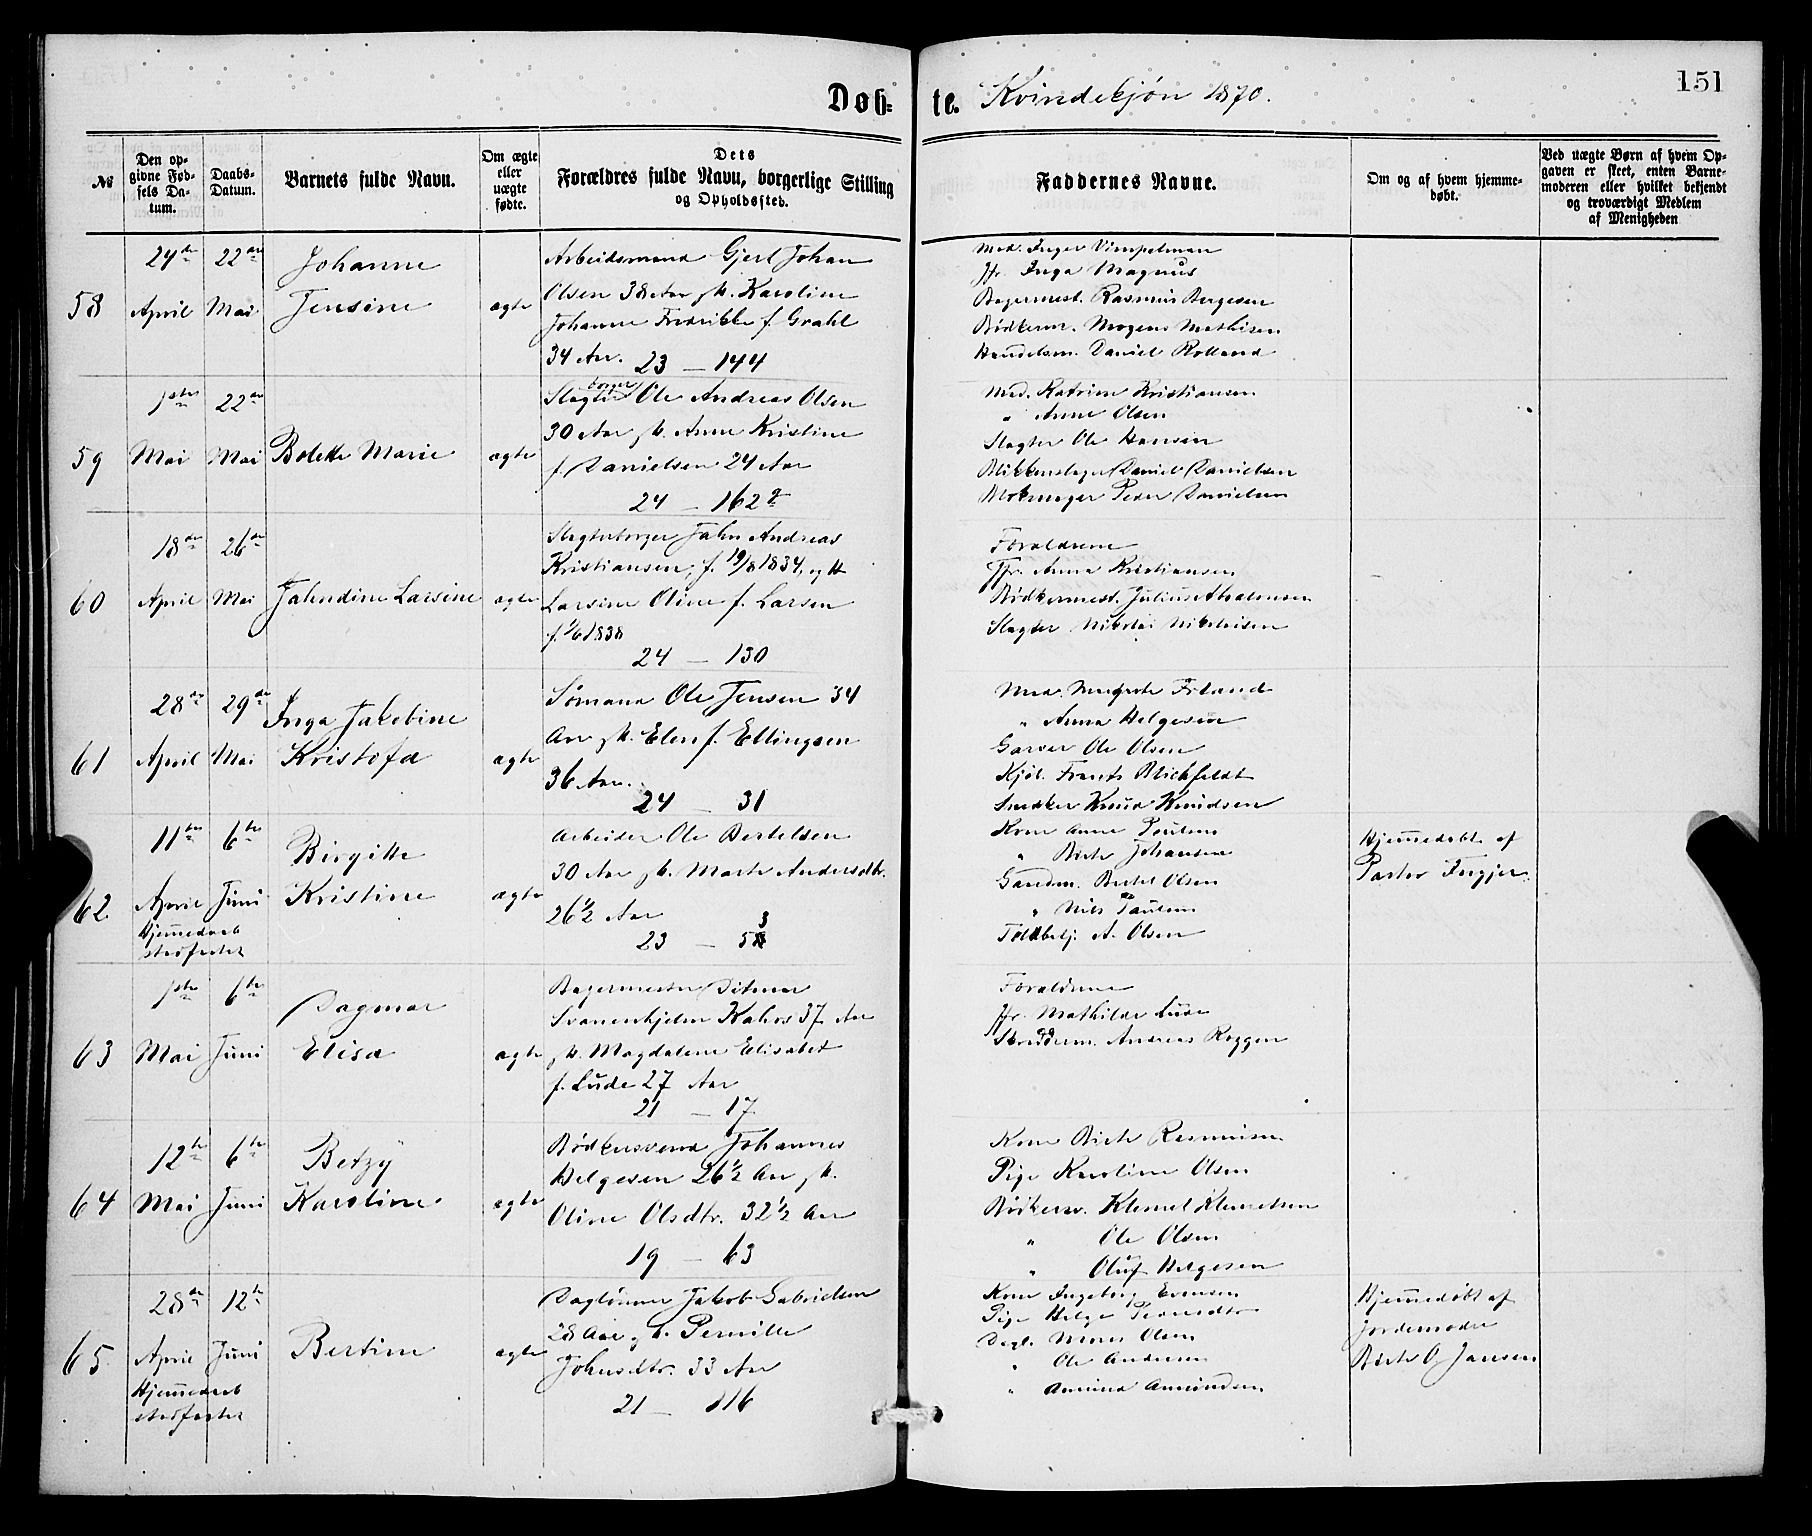 151
Døb- te. Kvindekjøn 1870.
No
Den op-
givne Fød-
sels Da-
tum.
Daabs-
Datum.
Barnets fulde Navn.
Om ægte
eller
uægte
fødte.
Dets
Forældres fulde Navn, borgerlige Stilling
og Opholdssted.
Faddernes Navne.
Om og af hvem hjemme-
døbt.
Ved uægte Børn af hvem Op-
gaven er skeet, enten Barne-
moderen eller hvilket bekjendt
og troværdigt Medlem
af Menigheden
58
24de
April
22de
Mai
Johanne
Jensine
ægte
Arbeidsmand Gjert Johan
Olsen 38 Aar, H. Karoline
Johanne Fredrikke f. Grahl
34 Aar. 23 — 144
Mad. Inger Vimpelman
Jfr. Inga Magnus
Bagermest. Rasmus Bergesen
Bødkerm. Mogens Mathisen
Handelsm. Daniel Rolland
59
1ste
Mai
22de
Mai
Bolette Marie
ægte
Slagterborger Ole Andreas Olsen
30 Aar, H. Anne Kristine
f. Danielsen 24 Aar
24 — 162
Mad. Katrine Kristiansen
" Anne Olsen
Slagter Ole Hansen
Blikkenslager Daniel Danielsen
Peder Danielsen
60
18de
April
26de
Mai
Jahndine Larsine
ægte
Slagterborger Jahn Andreas
Kristiansen, f. 19/8 1834, og H
Larsine Oline f. Larsen
f. 1/6 1838
24 — 130
Forældrene
Jfr. Anna Kristiansen
Bødkermest. Julius Abrahamsen
Slagter Nikolai Nikolaisen
61
28de
April
29de
Mai
Inga Jakobine
Kristofa
ægte
Sømand Ole Jensen 34
Aar, H. Elen f. Ellingsen
36 Aar.
24 — 31
Mad. Margrete Friland
" Anna Helgesen
Garver Ole Olsen
Kjøb. Frants Blichfeldt
Snedker Knud Knudsen
62
11te
April
Hjemmedaab
stadfæstet
6te
Juni
Birgitte
Kristine
ægte
Arbeider Ole Bertelsen
30 Aar, H. Marte Andersdtr.
26 1/2 Aar
23 — 53
Kone Anne Paulsen
" Birte Johansen
Gaardm. Bertel Olsen
" Nils Paulsen
Toldbetj. A. Olsen
Hjemmedøbt af
Pastor
63
1ste
Mai
6te
Juni
Dagmar
Elisa
ægte
Bagermester Ditmar
Svanenhjelm Kahrs 37 Aar
H. Magdalene Elisabet
f. Lude 27 Aar
21 — 17
Forældrene
Jfr. Mathilde Lude
Skrædderm. Andreas Roggen
64
12te
Mai
6te
Juni
Betzy
Karoline
ægte
Bødkersvend Johannes
Helgesen 26 1/2 Aar, H.
Oline Olsdtr. 32 1/2 Aar
19 — 63
Kone Birte Rasmusen
Pige Karoline Olsen
Bødkersv. Klemet Klemetsen
" Ole Olsen
" Oluf Helgesen
65
28de
April
Hjemmedaab
stadfæstet
12te
Juni
Bertine
ægte
Daglønner Jakob Gabrielsen
28 Aar, H. Pernille
Johnsdtr. 33 Aar
21 — 116
Kone Ingeborg Evensen
Pige Helga
Dagl. Mons Olsen
" Ole Andersen
" Amund Amundsen
Hjemmedøbt af
Jordemoder
Birte O. Jansen